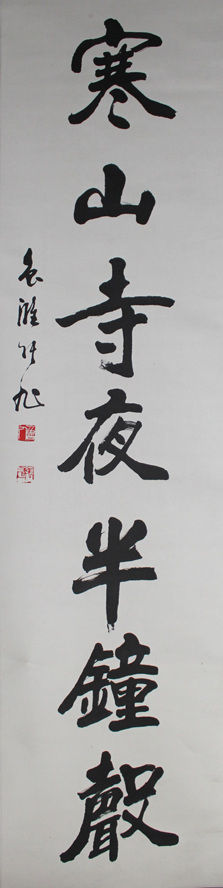 寒山寺夜半鐘聲